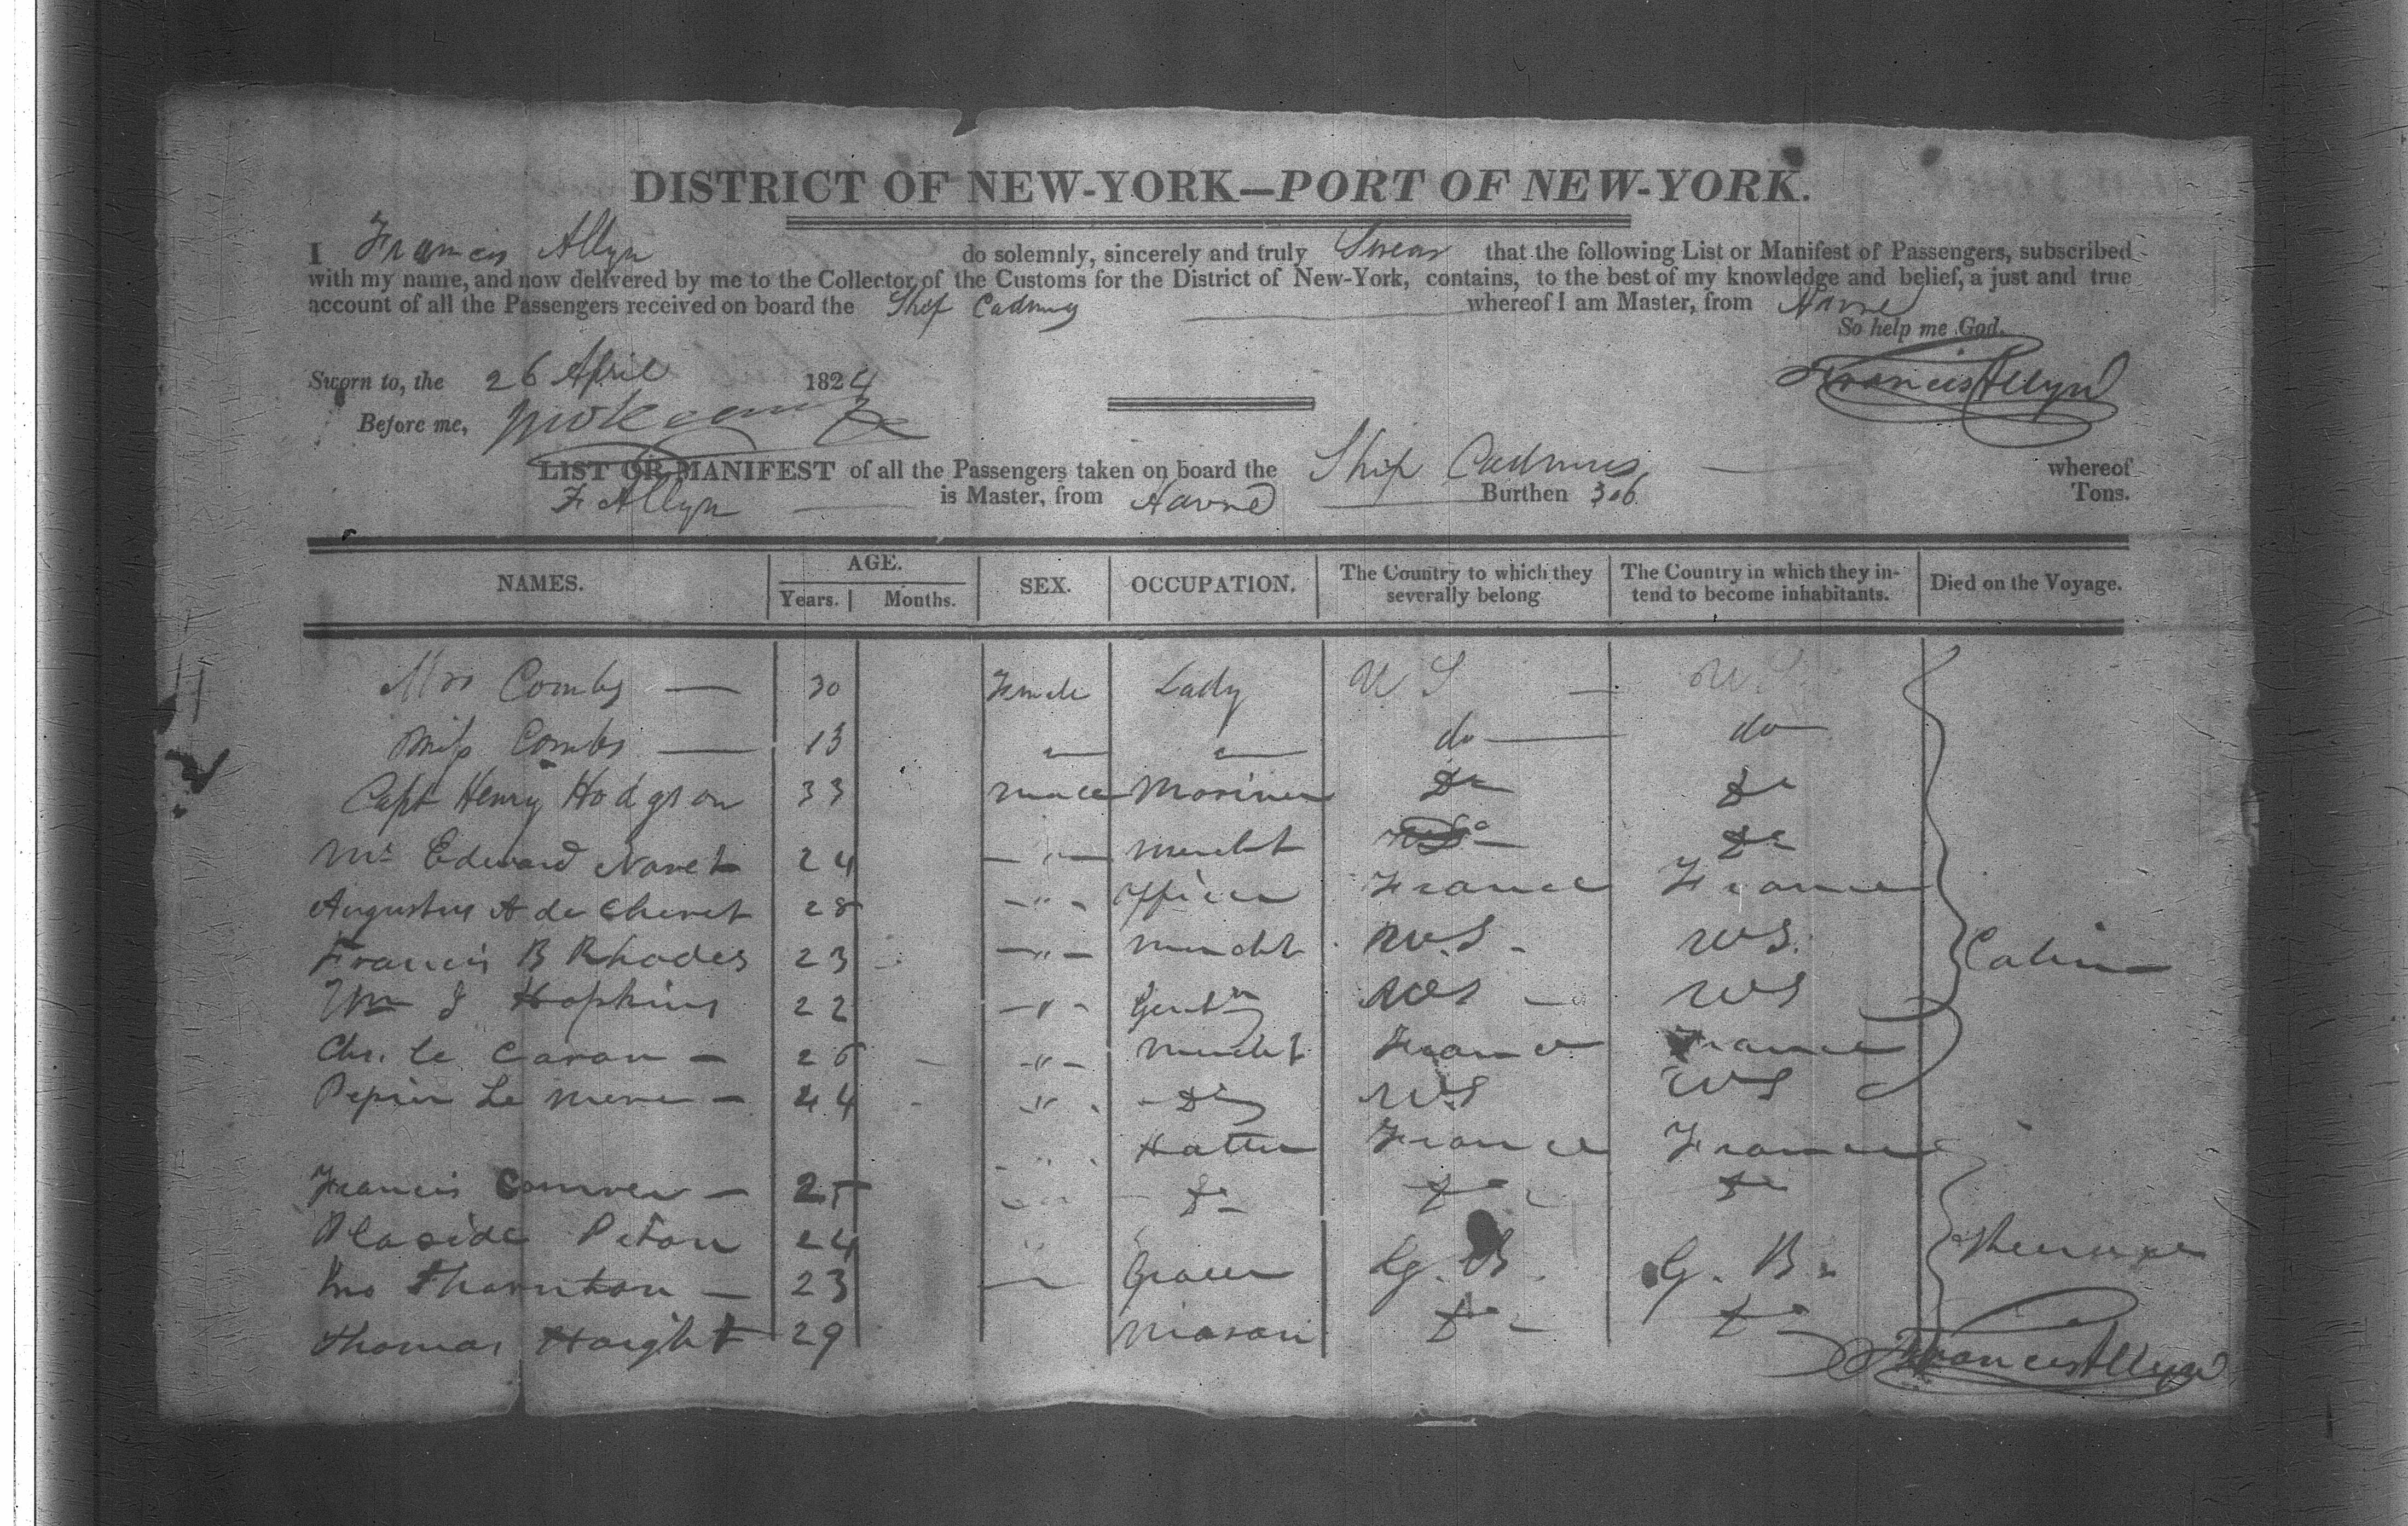 DISTRICT OF NEW-YORK—PORT OF NEW-YORK.
I Francis Allyn do solemnly, sincerely and truly Swear that the following List or Manifest of Passengers, subscribed
with my name, and now delivered by me to the Collector of the Customs for the District of New-York, contains, to the best of my knowledge and belief, a just and true
account of all the Passengers received on board the Ship Cadmus whereof I am Master, from Havre
So help me God.
Sworn to, the 26 April 1824 Francis Allyn
Before me,
LIST OR MANIFEST of all the Passengers taken on board the Ship Cadmus — whereof
F Allyn is Master, from Havre Burthen 306 Tons.
NAMES. AGE. SEX. OCCUPATION. The Country to which they severally belong The Country in which they intend to become inhabitants. Died on the Voyage.
Years. Months.
Mrs Combs — 30 Female Lady U S — U S
Miss Combs — 13 " " do — do
Capt Henry Hodgson 33 male Mariner Do Do
Mr Edward Navet 24 " Mercht Do Do
Augustus A de Chevet 28 " Officer France France
Francis B Rhodes 23 " Mercht US US.
Wm J Hopkins 22 " Gentn US US
Cabin
Chs. le Caron — 26 " Mercht France France
Pepin Le — 44 " Do US US
" Hatter France France
Francis — 25 " Do Do Do
Placide Piton 24 "
Jno Thornton — 23 " Grocer G. B. G. B.
Steerage
Thomas Haight 29 Mason Do Do
Francis Allyn